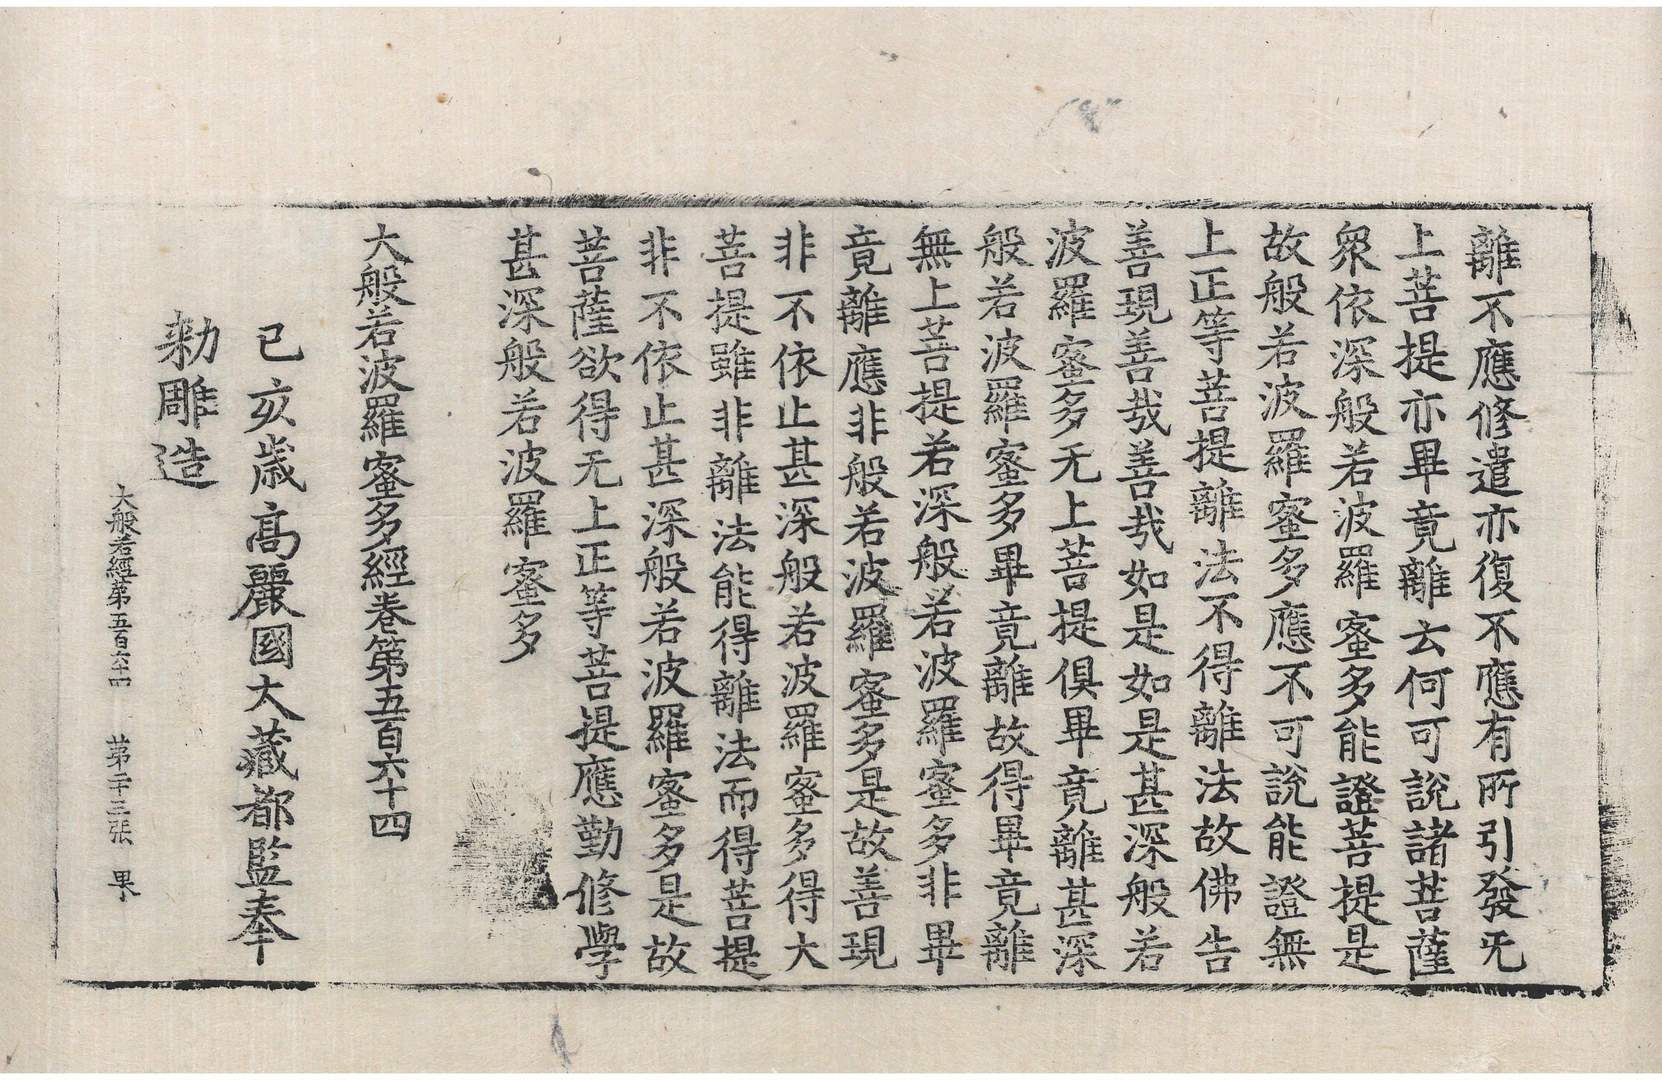 離不應修遣亦復不應有所引發无
上菩提亦畢竟離云何可說諸菩薩
衆依深般若波羅蜜多能證菩提是
故般若波羅蜜多應不可說能證無
上正等菩提離法不得離法故佛告
善現善哉善哉如是如是甚深般若
波羅蜜多无上菩提俱畢竟離甚深
般若波羅蜜多畢竟離故得畢竟離
無上菩提若深般若波羅蜜多非畢
竟離應非般若波羅蜜多是故善現
非不依止甚深般若波羅蜜多得大
菩提雖非離法能得離法而得菩提
非不依止甚深般若波羅蜜多是故
菩薩欲得无上正等菩提應勤修學
甚深般若波羅蜜多
大般若波羅蜜多經卷第五百六十四
己亥歲高麗國大藏都監奉
勑雕造
大般若經第五百六十四 苐二十三張 果